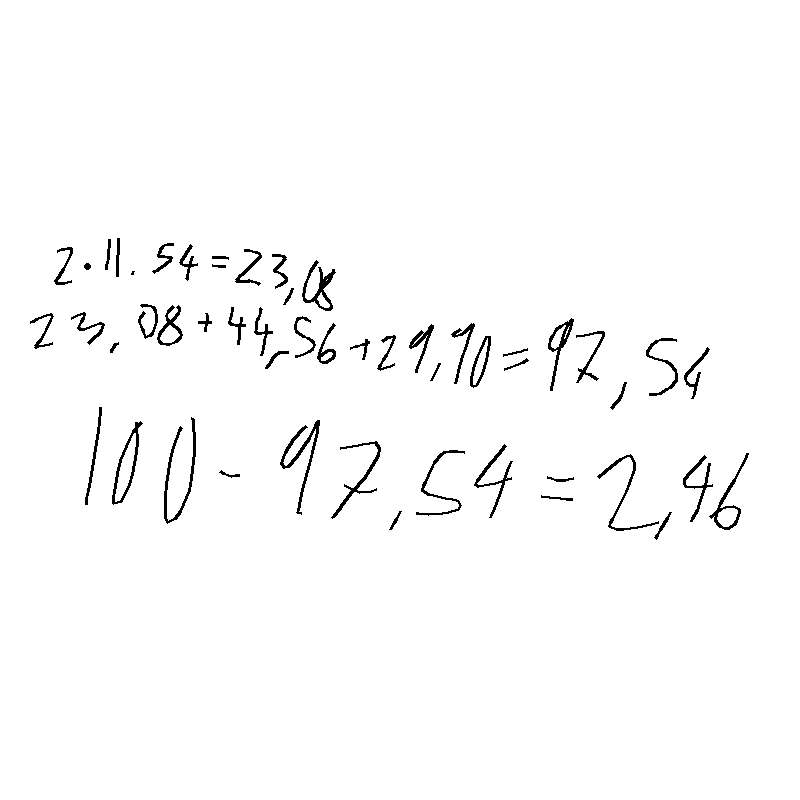 2·11.54=23,08
23,08+44,56+29,90=97,54
100-97,54=2,46